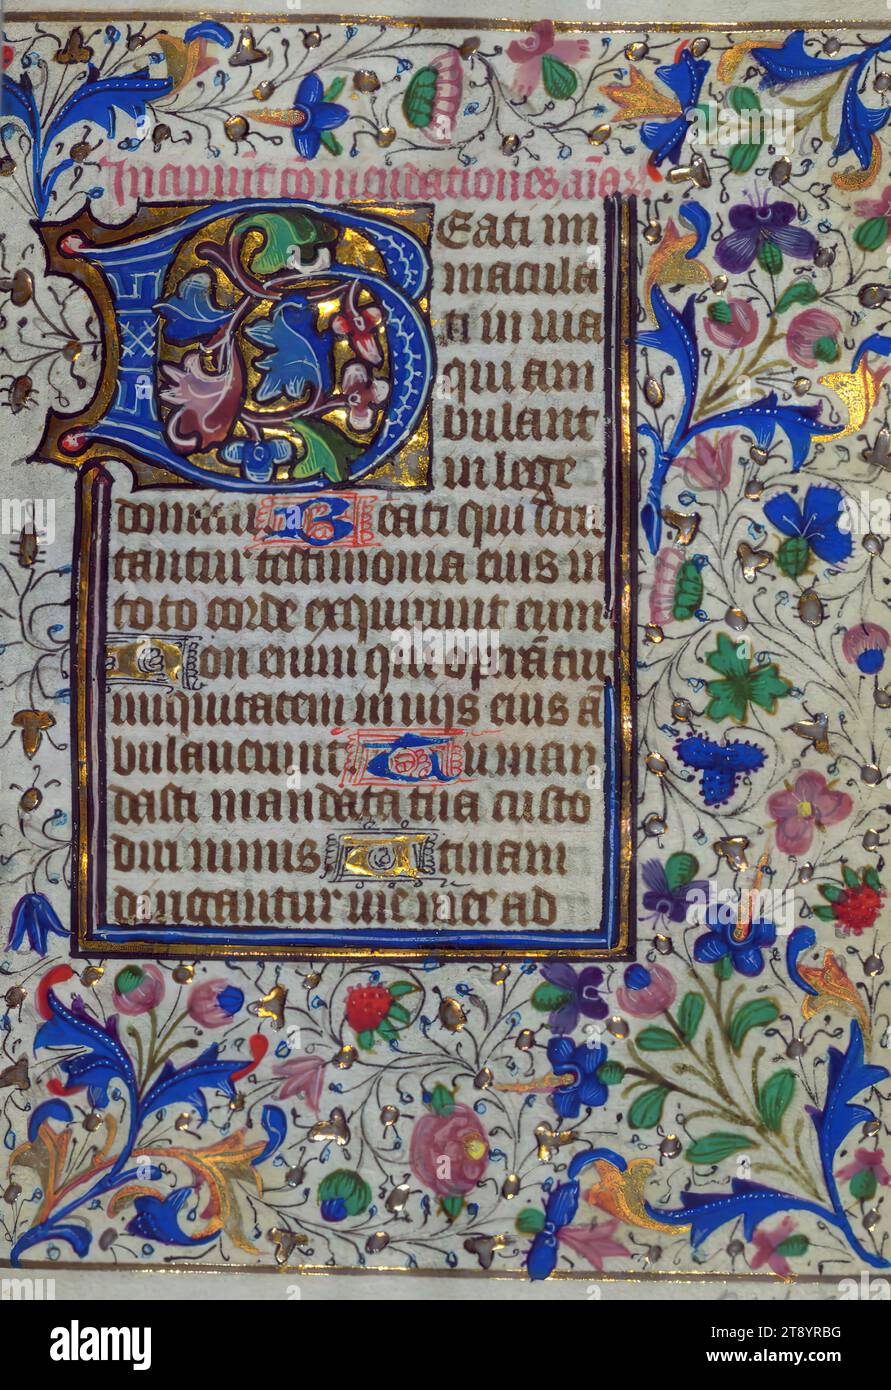 Incipiūt cōmendationes aīar
BEati im
macula
ti in uia
qui am
bulant
in lege
domini Beati qui scru
tantur testimonia eius in
toto corde exquirunt eum
Non enim qui operātur
iniquitatem in uijs eius ā
bulauerunt Tu man
dasti mandata tua custo
diri nimis Utinam
dirigantur uie mee ad
alamy
Image ID: 2T8YRBG
www.alamy.com